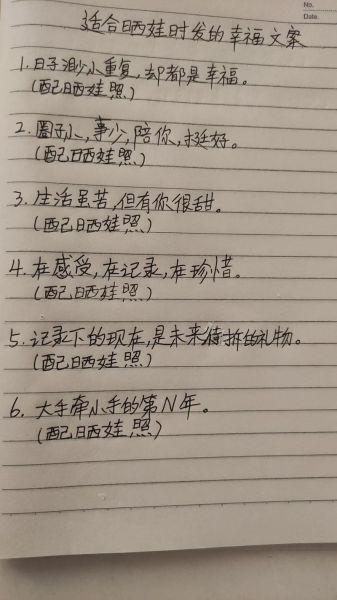 No.
Date.
适合晒娃时发的幸福文案
1.日子渺小重复,却都是幸福。
(配晒娃照)
2.圈子小,事少,陪你,挺好。
(配晒娃照)
3.生活虽苦,但有你很甜。
(配晒娃照)
4.在感受,在记录,在珍惜。
(配晒娃照)
5.记录下的现在,是未来待拆的礼物。
(配晒娃照)
6.大手牵小手的第N年。
(配晒娃照)